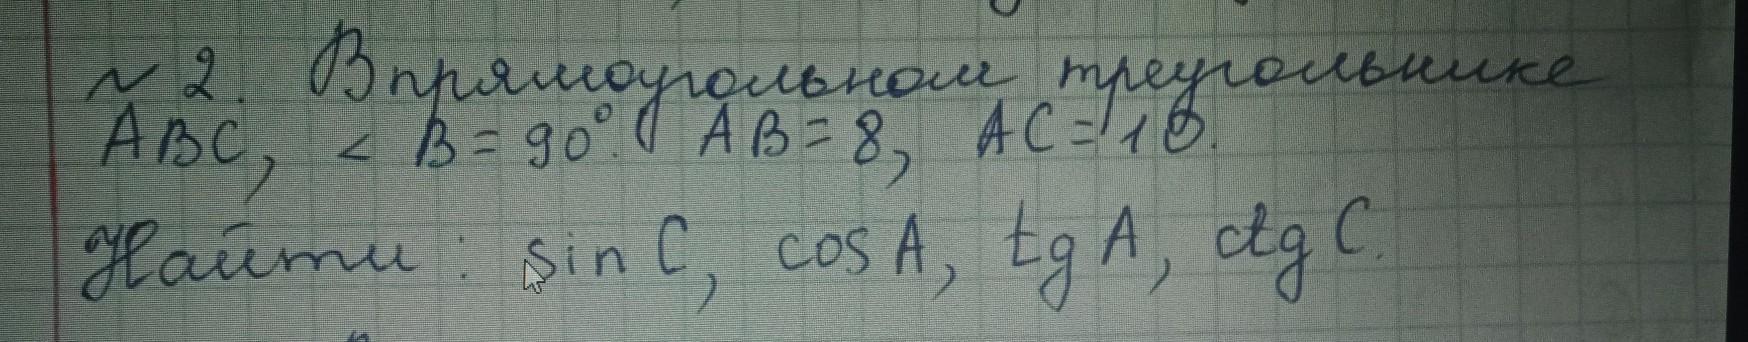 № 2. В прямоугольном треугольнике
ABC, < B = 90°. AB = 8, AC = 10.
Найти: sin C, cos A, tg A, ctg C.